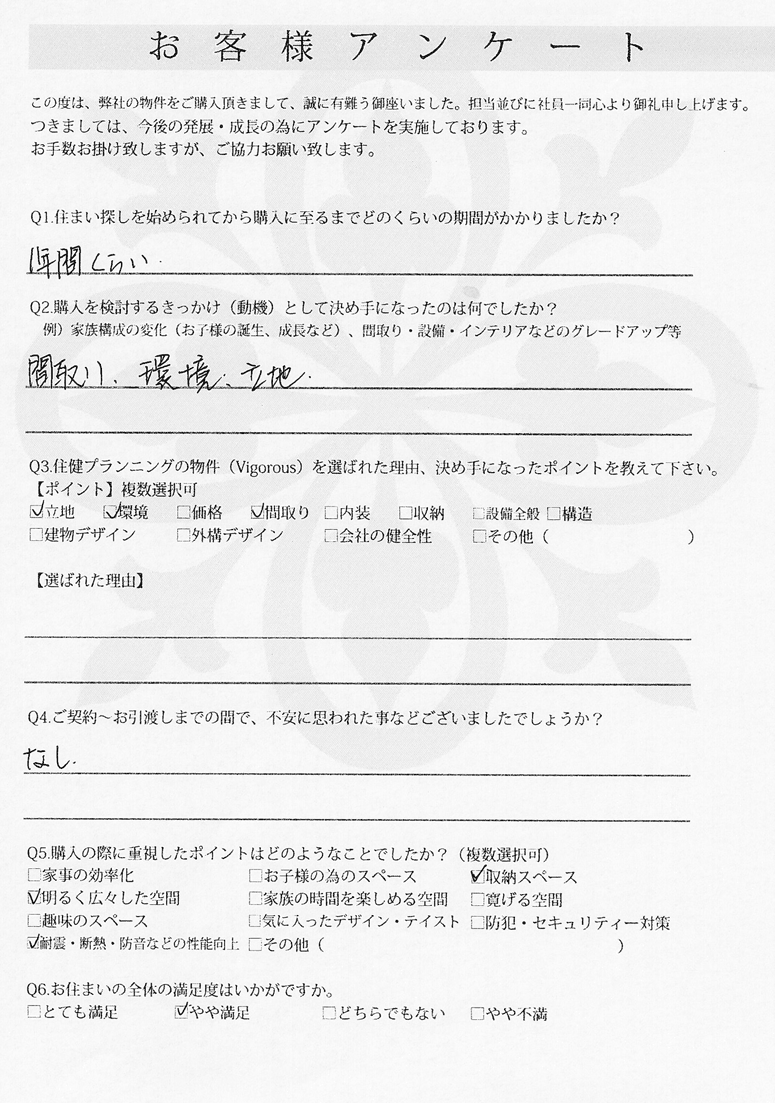 お客様アンケート
この度は、弊社の物件をご購入頂きまして、誠に有難う御座いました。担当並びに社員一同心より御礼申し上げます。
つきましては、今後の発展・成長の為にアンケートを実施しております。
お手数お掛け致しますが、ご協力お願い致します。
Q1.住まい探しを始められてから購入に至るまでどのくらいの期間がかかりましたか？
1年間くらい.
Q2.購入を検討するきっかけ（動機）として決め手になったのは何でしたか？
例）家族構成の変化（お子様の誕生、成長など）、間取り・設備・インテリアなどのグレードアップ等
間取り、環境、立地.
Q3.住健プランニングの物件（Vigorous）を選ばれた理由、決め手になったポイントを教えて下さい。
【ポイント】複数選択可
☑立地 ☑環境 □価格 ☑間取り □内装 □収納 □設備全般 □構造
□建物デザイン □外構デザイン □会社の健全性 □その他（ ）
【選ばれた理由】
Q4.ご契約～お引渡しまでの間で、不安に思われた事などございましたでしょうか？
なし.
Q5.購入の際に重視したポイントはどのようなことでしたか？（複数選択可）
□家事の効率化 □お子様の為のスペース ☑収納スペース
☑明るく広々した空間 □家族の時間を楽しめる空間 □寛げる空間
□趣味のスペース □気に入ったデザイン・テイスト □防犯・セキュリティー対策
☑耐震・断熱・防音などの性能向上 □その他（ ）
Q6.お住まいの全体の満足度はいかがですか。
□とても満足 ☑やや満足 □どちらでもない □やや不満